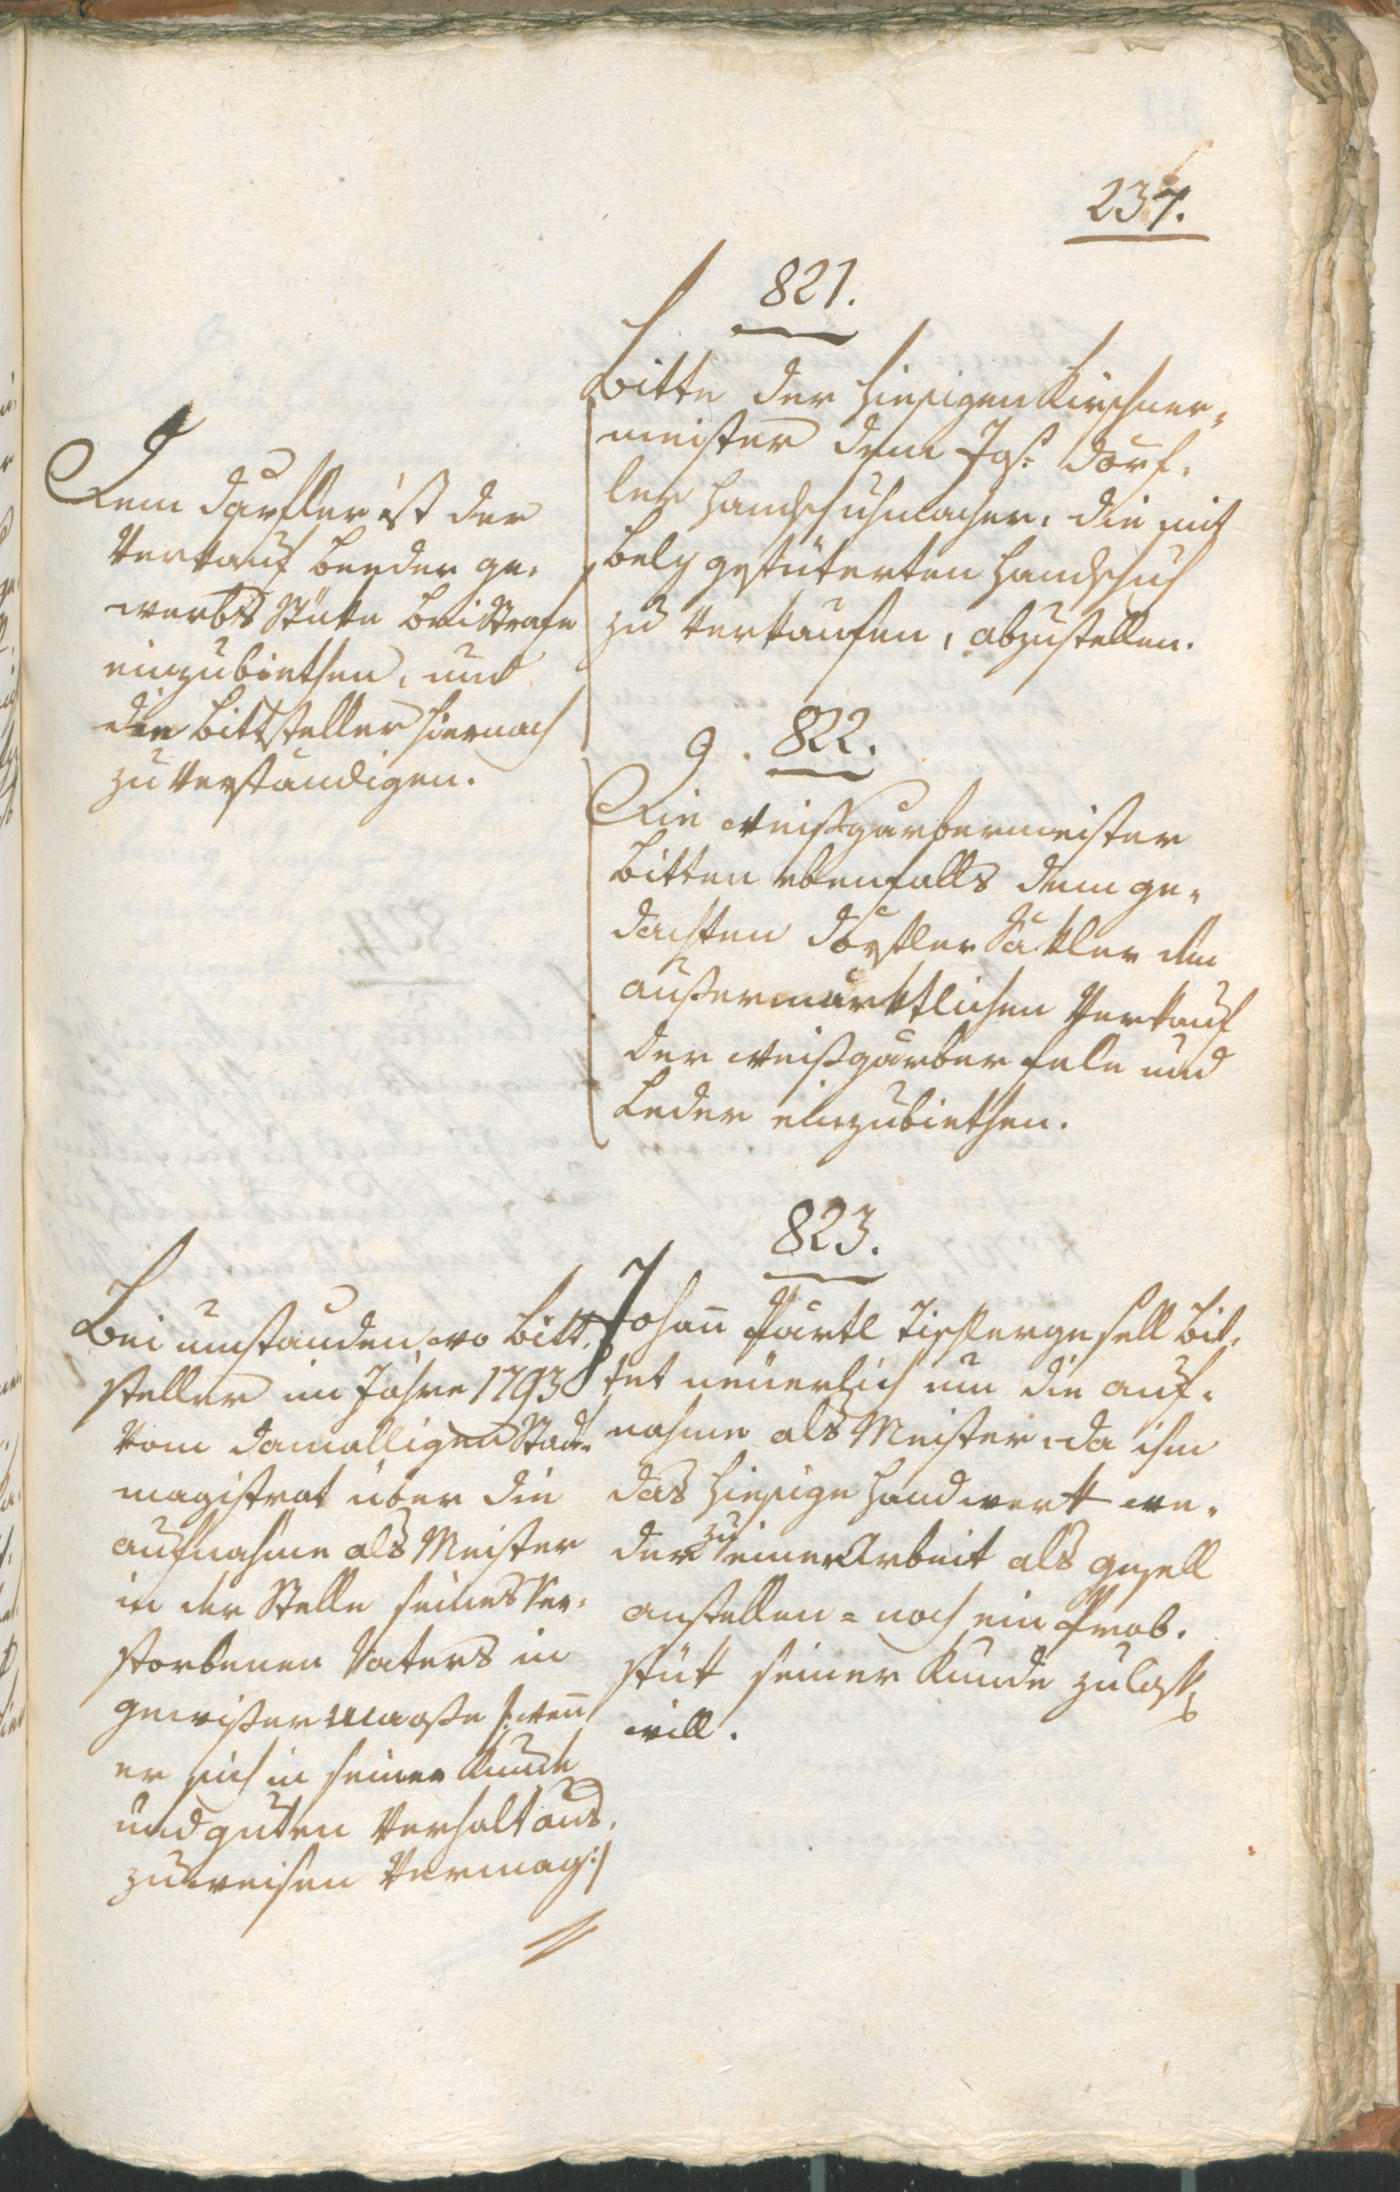 237.
821.
Bitte der hiesigen Kirschner¬
meister dem Jos: Dörf¬
ler Handschuhmacher, die mit
Belz gefüterten Handschuh
zu verkaufen, abzustellen.
9
Dem Dörfler ist der
Verkauf beeder ge¬
werbs Stüke bei Strafe
einzubiethen, und
die Bittsteller hiernach
zu verständigen.
9. 822.
Die weißgärbermeister
bitten ebenfalls dem ge¬
dachten Dörfler Säkler den
außermarktlichen Verkauf
der weißgärber fele und
Leder einzubiethen.
823.
Johañ Pärtl Tischlergesell bit¬
tet neüerlich um die auf¬
nahme als Meister, da ihm
das hiesige Handwerk we¬
der zu einer Arbeit als gesell
anstellen = noch ein Prob¬
stük seiner Kunde zulass
will.
Bei umständen, wo Bitt¬
steller im Jahre 1793
vom damalligen Stadt¬
magistrat über die
aufnahme als Meister
in der Stelle seines ver¬
storbenen Vaters in
gewißer Maaße /: weñ
er sich in seiner Kunde
und guten Verhalt aus¬
zuweisen vermag :/